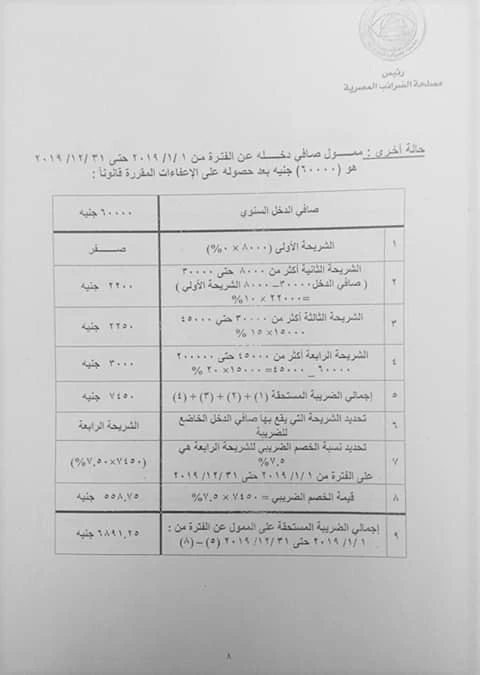 رئيس
مصلحة الضرائب المصرية
حالة أخرى : ممول صافي دخله عن الفترة من ١ /١/ ٢٠١٩ حتى ٣١ /١٢/ ٢٠١٩
هو (٦٠٠٠٠) جنيه بعد حصوله على الإعفاءات المقررة قانوناً :
صافي الدخل السنوي ٦٠٠٠٠ جنيه
١ الشريحة الأولى (٨٠٠٠ × ٠%) صفر
٢ الشريحة الثانية أكثر من ٨٠٠٠ حتى ٣٠٠٠٠
( صافي الدخل ٣٠٠٠٠– ٨٠٠٠ الشريحة الأولي )
=٢٢٠٠٠ × ١٠% ٢٢٠٠ جنيه
٣ الشريحة الثالثة أكثر من ٣٠٠٠٠ حتى ٤٥٠٠٠
١٥٠٠٠× ١٥ % ٢٢٥٠ جنيه
٤ الشريحة الرابعة أكثر من ٤٥٠٠٠ حتى ٢٠٠٠٠٠
٦٠٠٠٠ _ ٤٥٠٠٠= ١٥٠٠٠× ٢٠ % ٣٠٠٠ جنيه
٥ إجمالي الضريبة المستحقة (١) + (٢) + (٣) + (٤) ٧٤٥٠ جنيه
٦ تحديد الشريحة التي يقع بها صافي الدخل الخاضع
للضريبة الشريحة الرابعة
٧ تحديد نسبة الخصم الضريبي للشريحة الرابعة هي
٧.٥%
على الفترة من ١ /١/ ٢٠١٩ حتى ٣١ /١٢/ ٢٠١٩ (٧٤٥٠×٧.٥٠%)
٨ قيمة الخصم الضريبي = ٧٤٥٠ × ٧.٥% ٥٥٨,٧٥ جنيه
٩ إجمالي الضريبة المستحقة على الممول عن الفترة من :
١ /١/ ٢٠١٩ حتى ٣١ /١٢/ ٢٠١٩ (٥) – (٨) ٦٨٩١,٢٥ جنيه
٨